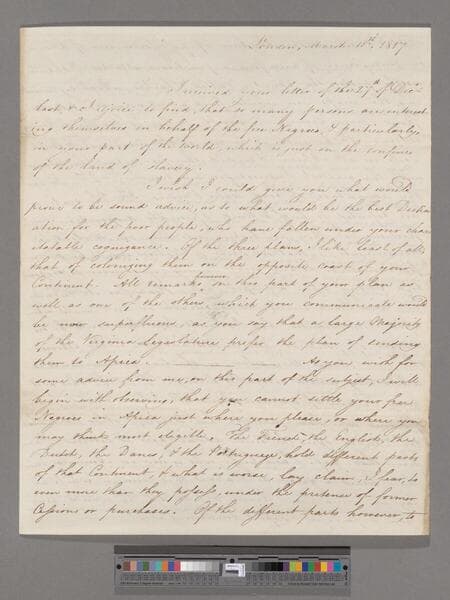 London, March 10th, 1817
I received your letter of the 27th of Decr
last & I rejoice to find that so many persons are interest
ing themselves in behalf of the free Negroes, & particularly
in your part of the World, which is just on the confines
of the land of Slavery.
I wish I could give you what would
prove to be sound advice, as to what would be the best Destin
ation for the poor people, who have fallen under your char
itable cognizance. Of the three plans, I like least of all,
that of colonizing them on the opposite coast of your
Continent. All remarks however on this part of your plan as
well as one of the others, which you communicate would
be now superfluous, as you say that a large Majority
of the Virginia Legislature prefer the plan of sending
them to Africa. As you wish for
some advice from me, on this part of the subject, I will
begin with observing, that you cannot settle your free
Negroes in Africa just where you please, or where you
may think most eligible. The French, the English, the
Dutch, the Danes, & the Portuguese, hold different parts
of that Continent, & what is worse, lay claim, I fear, to
even more than they possess, under the pretence of former
Cessions or purchases. Of the different parts however, to